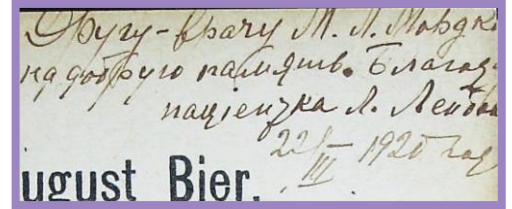 Другу-врачу М. Л. Мордк
на добрую память. Благод
пацiентка Л. Лейбов
22/III 1920 год
ugust Bier.